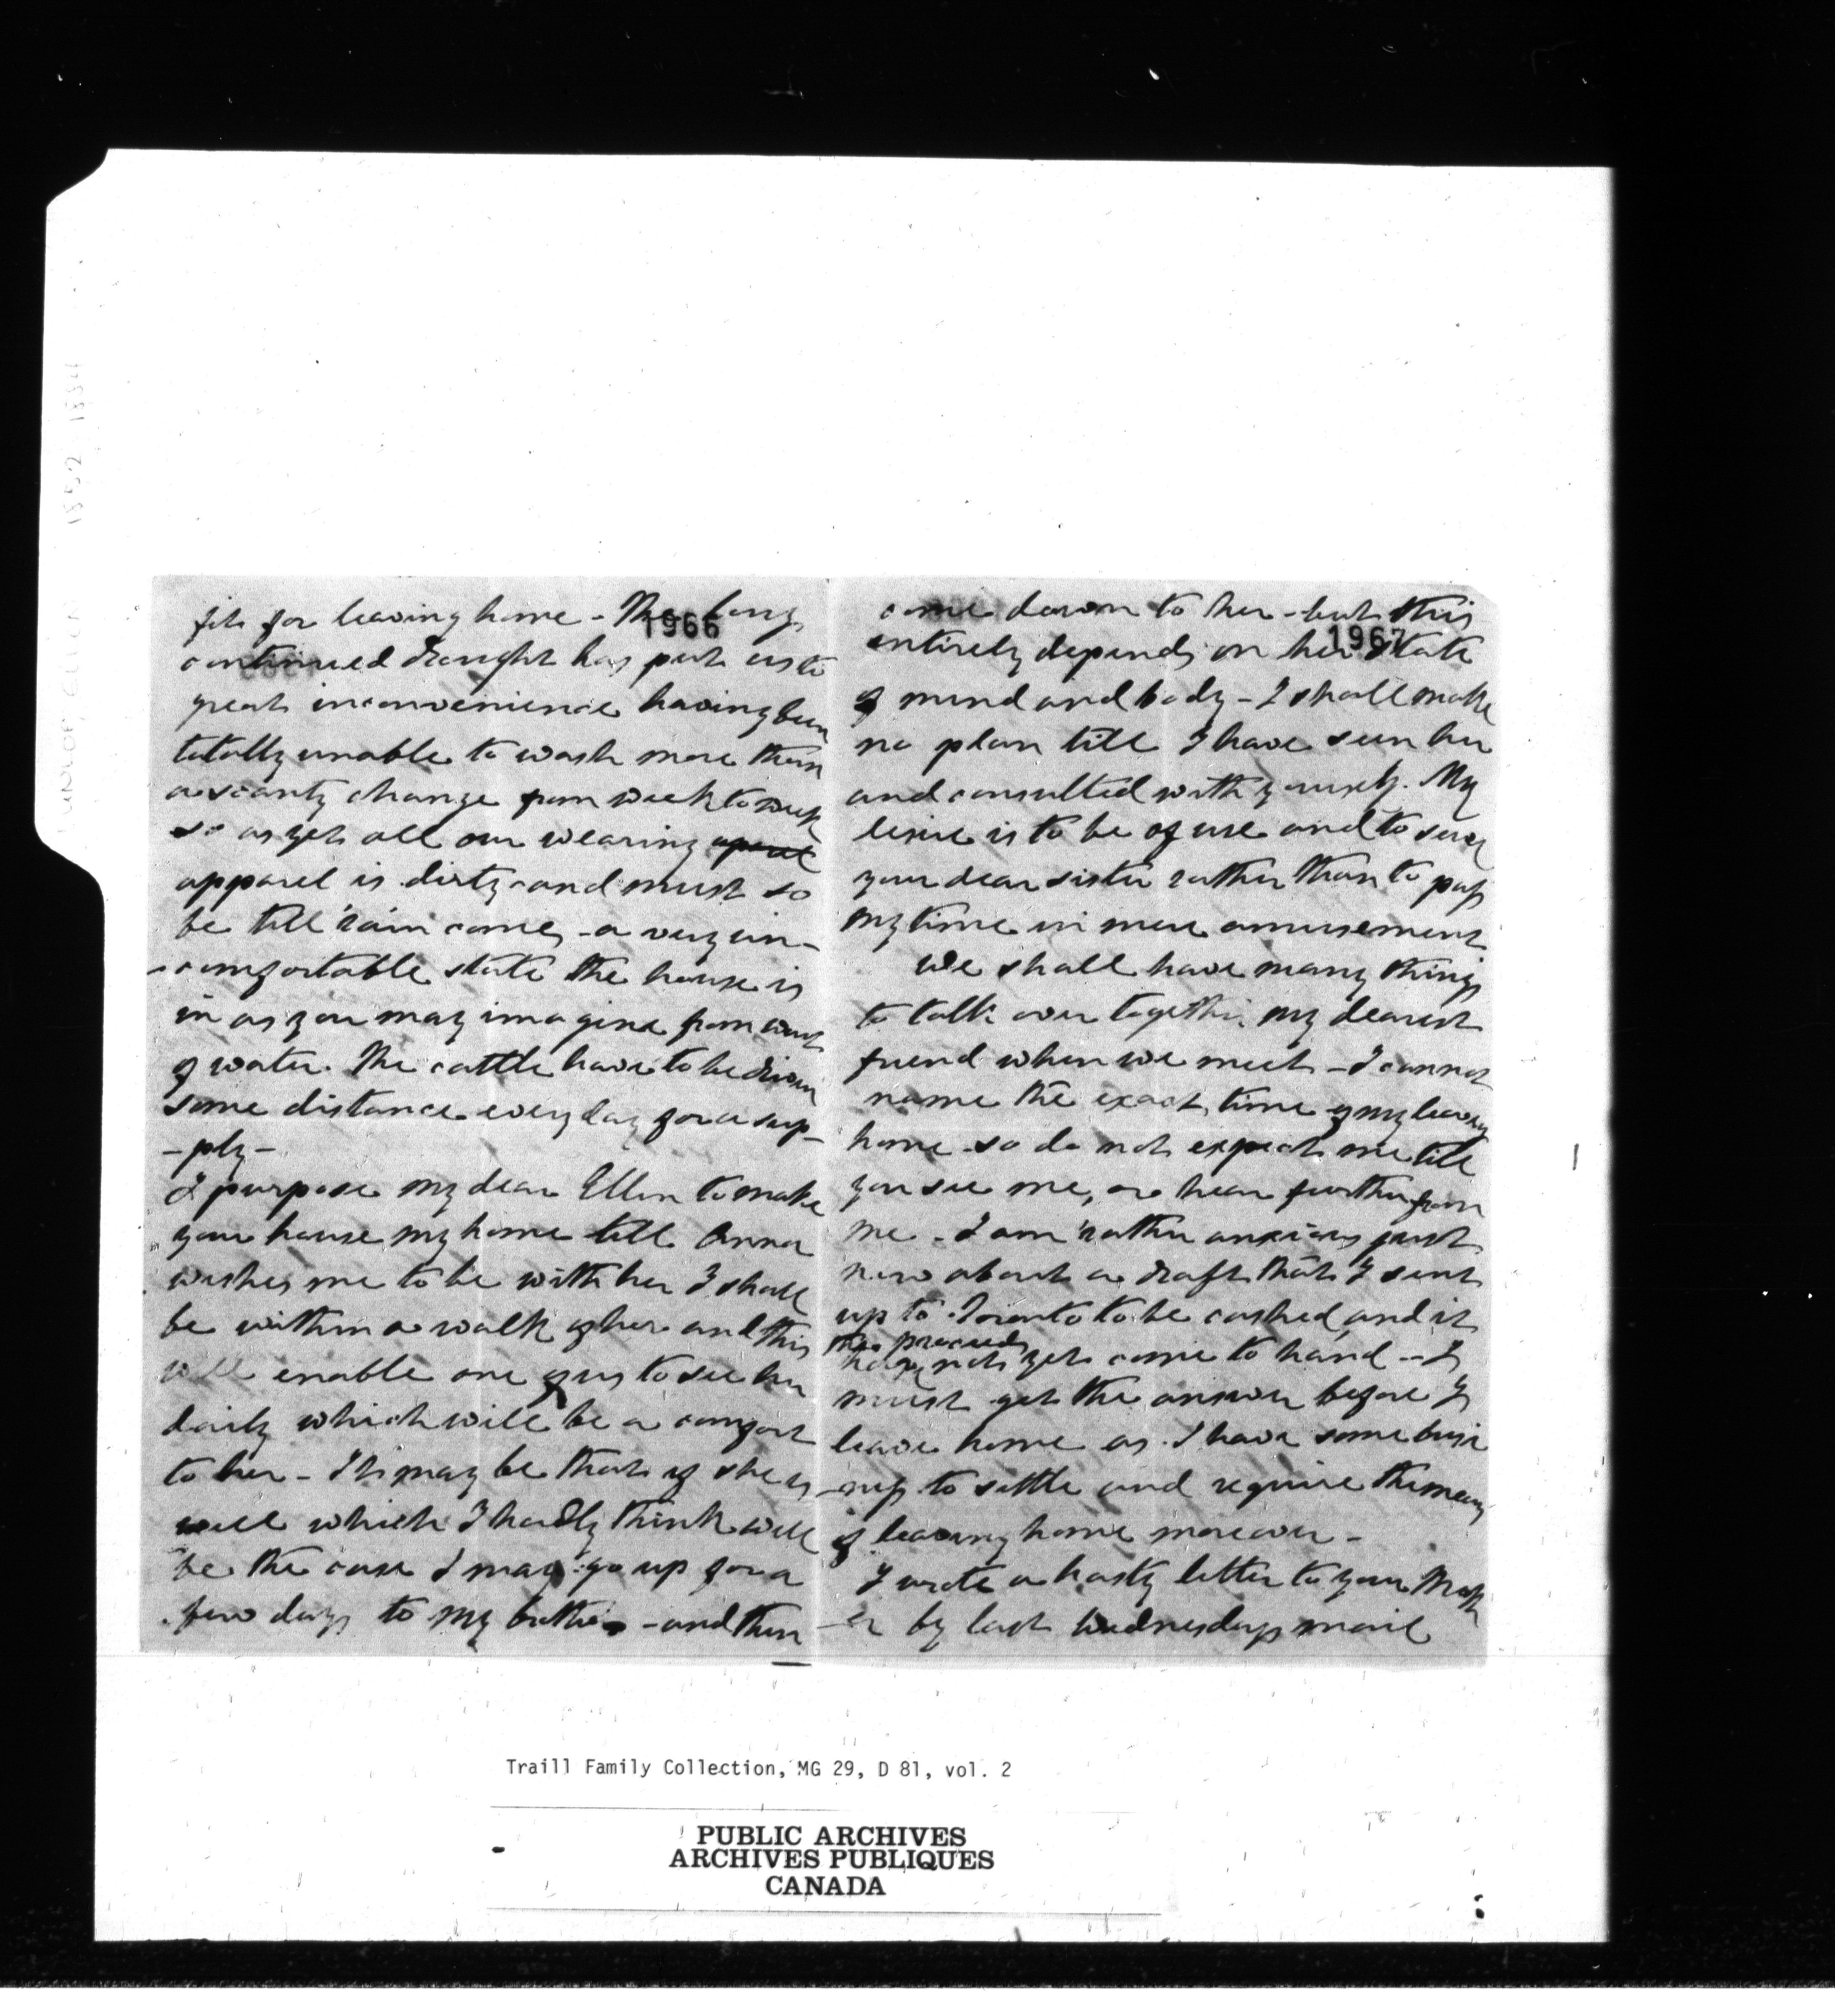 fit for leaving home - The long
1966
continued drought has put us to
great inconvenience having been
totally unable to wash more than
a scanty change from week to week
so as yet all our wearing aparel
apparel is dirty and must so
be till rain comes - a very un-
-comfortable state the house is
in as you may imagine from want
of water. The cattle have to be driven
some distance every day for a sup-
-ply -
I purpose my dear Ellen to make
your house my home till Anna
wishes me to be with her I shall
be within a walk of her and this
will enable one of us to see her
daily which will be a comfort
to her - It may be that if she is
well which I hardly think will
be the case I may go up for a
few days to my brothers - and then
come down to her - but this
1967
entirely depends on her state
of mind and body - I shall make
no plan till I have seen her
and consulted with yourself. My
desire is to be of use and to serve
your dear sister rather than to pass
my time in mere amusement
We shall have many things
to talk over together my dearest
friend when we meet - I cannot
name the exact time of my leaving
home so do not expect me till
you see me, or hear further from
me - I am rather anxious just
now about a draft that I sent
up to Toronto to be cashed, and it
the proceeds
have not yet come to hand - I
must get the answer before I
leave home as I have some busi
-ness to settle and require the means
of leaving home moreover -
I wrote a hasty letter to your Moth
-er by last Wednesdays mail
Traill Family Collection, MG 29, D 81, vol. 2
PUBLIC ARCHIVES
ARCHIVES PUBLIQUES
CANADA